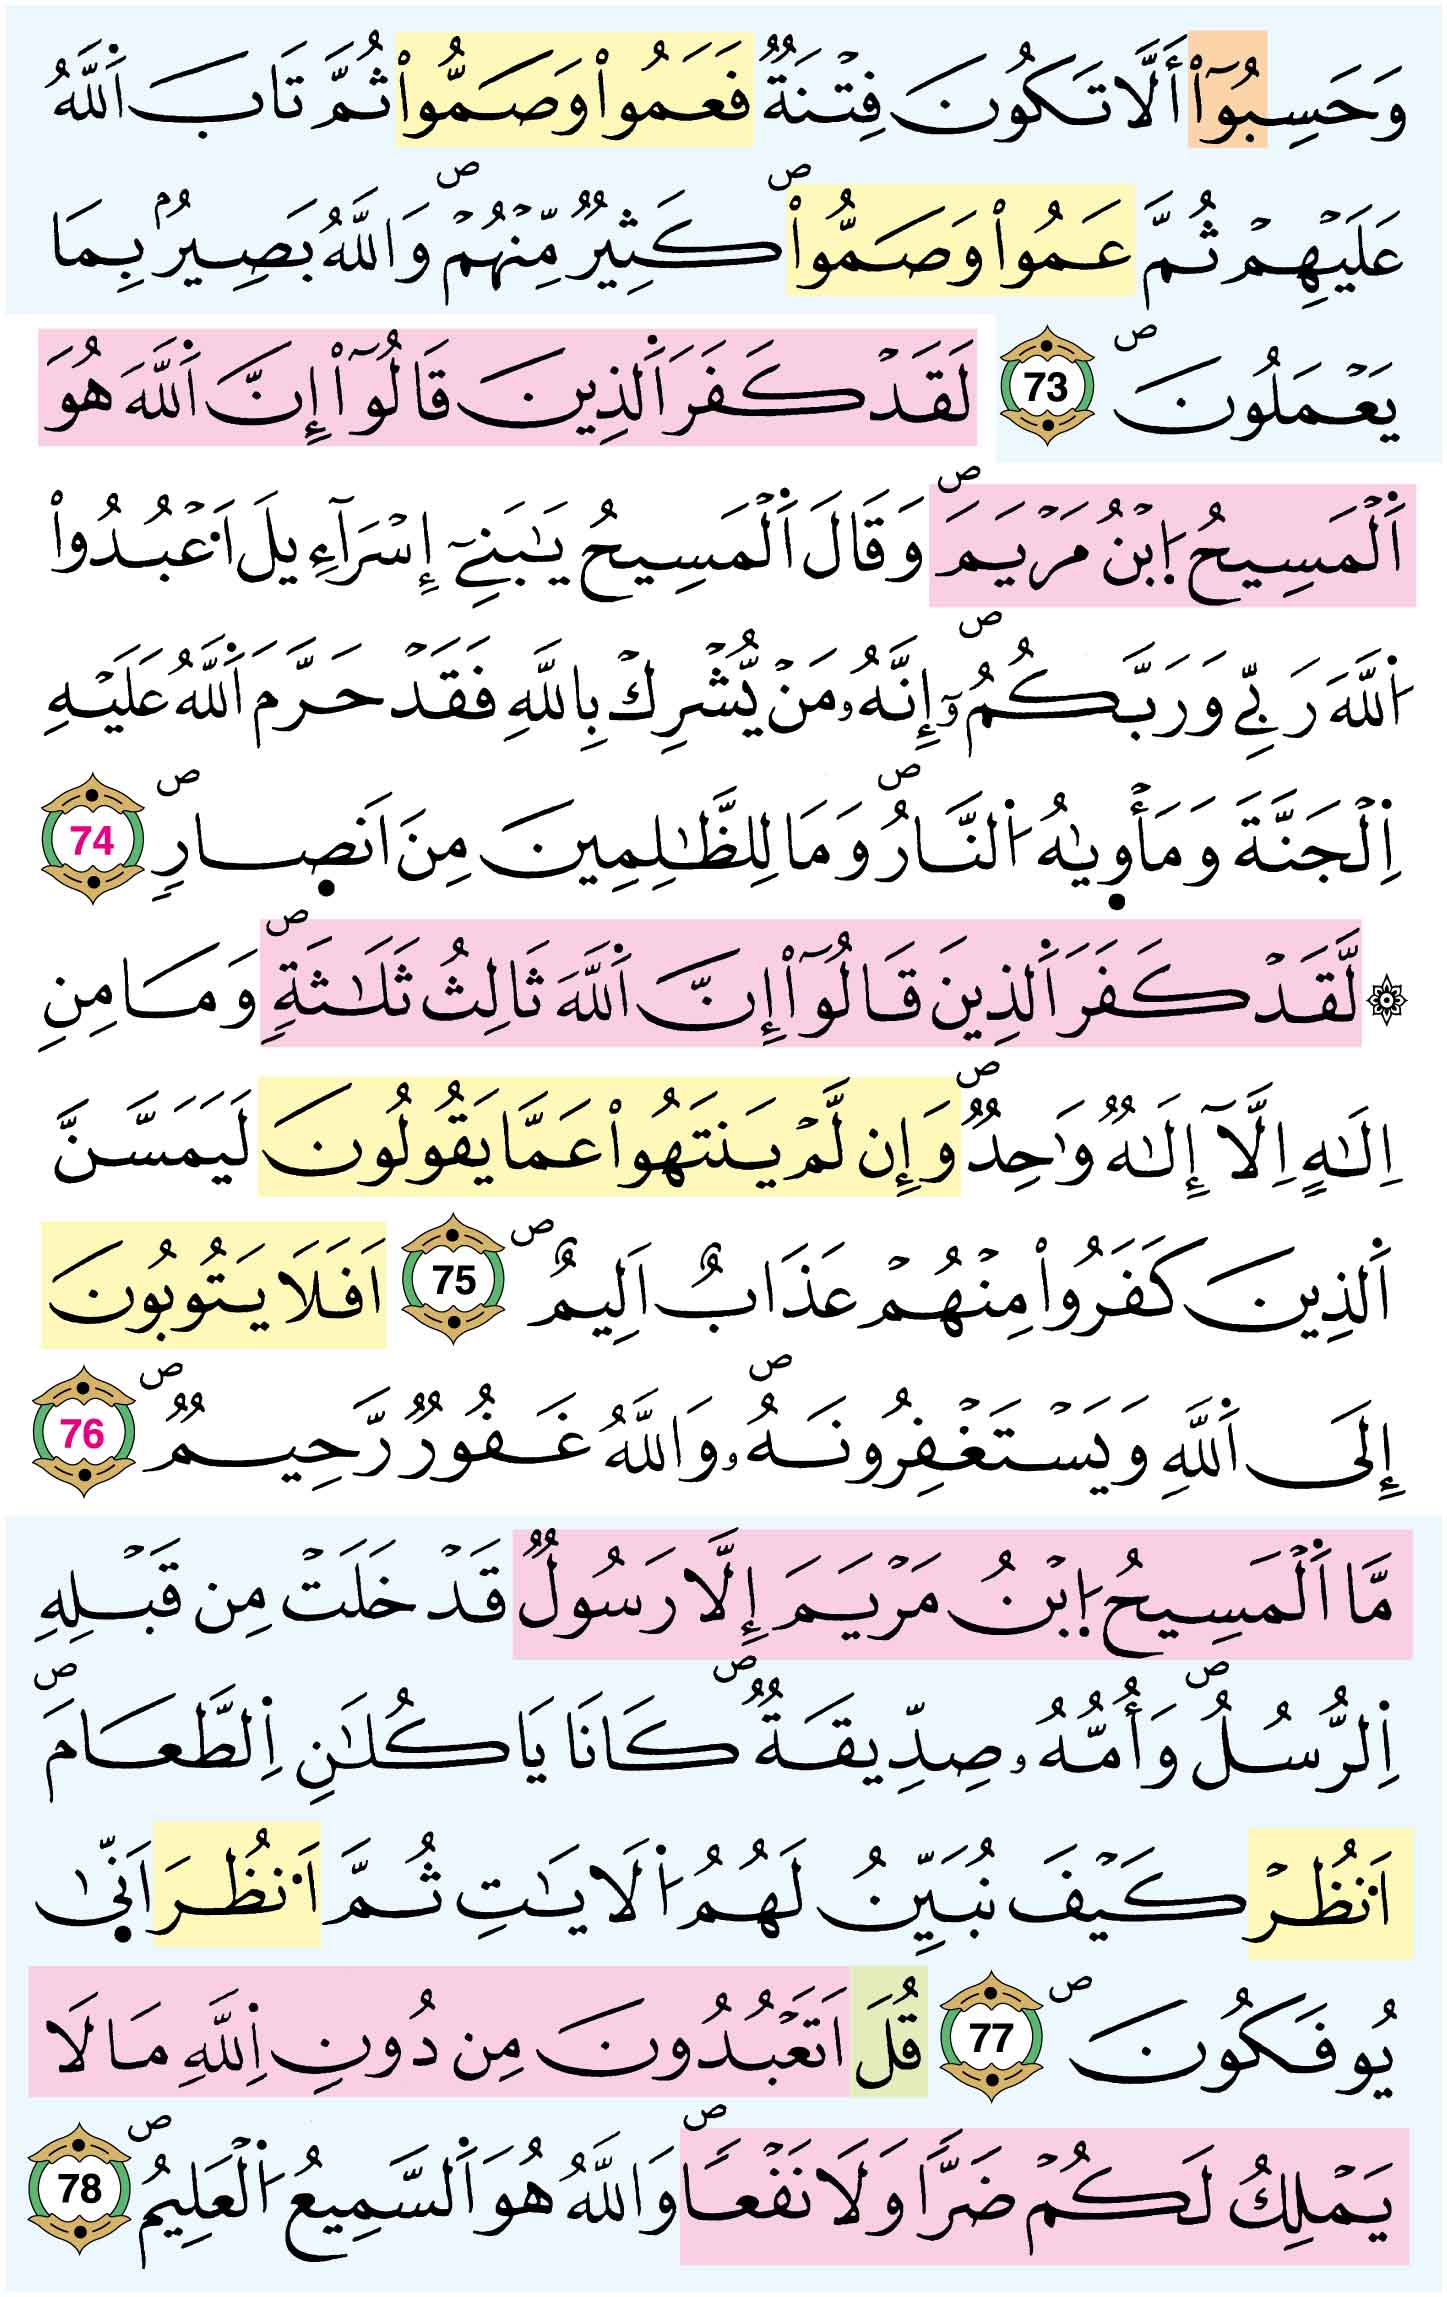 وَحَسِبُوٓاْ أَلَّا تَكُونَ فِتْنَةٞ فَعَمُواْ وَصَمُّواْ ثُمَّ تَابَ اَ۬للَّهُ
عَلَيْهِمْ ثُمَّ عَمُواْ وَصَمُّواْ ص كَثِيرٞ مِّنْهُمْ ص وَاللَّهُ بَصِيرُۢ بِمَا
يَعْمَلُونَ ص 73 لَقَدْ كَفَرَ اَ۬لذِينَ قَالُوٓاْ إِنَّ اَ۬للَّهَ هُوَ
اَ۬لْمَسِيحُ اُ۪بْنُ مَرْيَمَ ص وَقَالَ اَ۬لْمَسِيحُ يَٰبَنِےٓ إِسْرَآءِيلَ اَ۟عْبُدُواْ
اُ۬للَّهَ رَبِّي وَرَبَّكُمُۥٓ ص إِنَّهُۥ مَنْ يُّشْرِكْ بِاللَّهِ فَقَدْ حَرَّمَ اَ۬للَّهُ عَلَيْهِ
اِ۬لْجَنَّةَ وَمَأْو۪يٰهُ اُ۬لنَّارُ ص وَمَا لِلظَّٰلِمِينَ مِنَ اَنص۪ارٖ ص 74
۞ لَّقَدْ كَفَرَ اَ۬لذِينَ قَالُوٓاْ إِنَّ اَ۬للَّهَ ثَالِثُ ثَلَٰثَةٖ ص وَمَا مِنِ
اِلَٰهٍ اِلَّآ إِلَٰهٞ وَٰحِدٞ ص وَإِن لَّمْ يَنتَهُواْ عَمَّا يَقُولُونَ لَيَمَسَّنَّ
اَ۬لذِينَ كَفَرُواْ مِنْهُمْ عَذَابٌ اَلِيمٌ ص 75 اَفَلَا يَتُوبُونَ
إِلَى اَ۬للَّهِ وَيَسْتَغْفِرُونَهُۥ ص وَاللَّهُ غَفُورٞ رَّحِيمٞ ص 76
مَّا اَ۬لْمَسِيحُ اُ۪بْنُ مَرْيَمَ إِلَّا رَسُولٞ قَدْ خَلَتْ مِن قَبْلِهِ
اِ۬لرُّسُلُ ص وَأُمُّهُۥ صِدِّيقَةٞ ص كَانَا يَاكُلَٰنِ اِ۬لطَّعَامَ ص
اَ۟نظُرْ كَيْفَ نُبَيِّنُ لَهُمُ اُ۬لَايَٰتِ ثُمَّ اَ۟نظُرَ اَنّ۪يٰ
يُوفَكُونَ ص 77 قُلَ اَتَعْبُدُونَ مِن دُونِ اِ۬للَّهِ مَا لَا
يَمْلِكُ لَكُمْ ضَرّٗا وَلَا نَفْعٗا ص وَاللَّهُ هُوَ اَ۬لسَّمِيعُ اُ۬لْعَلِيمُ ص 78